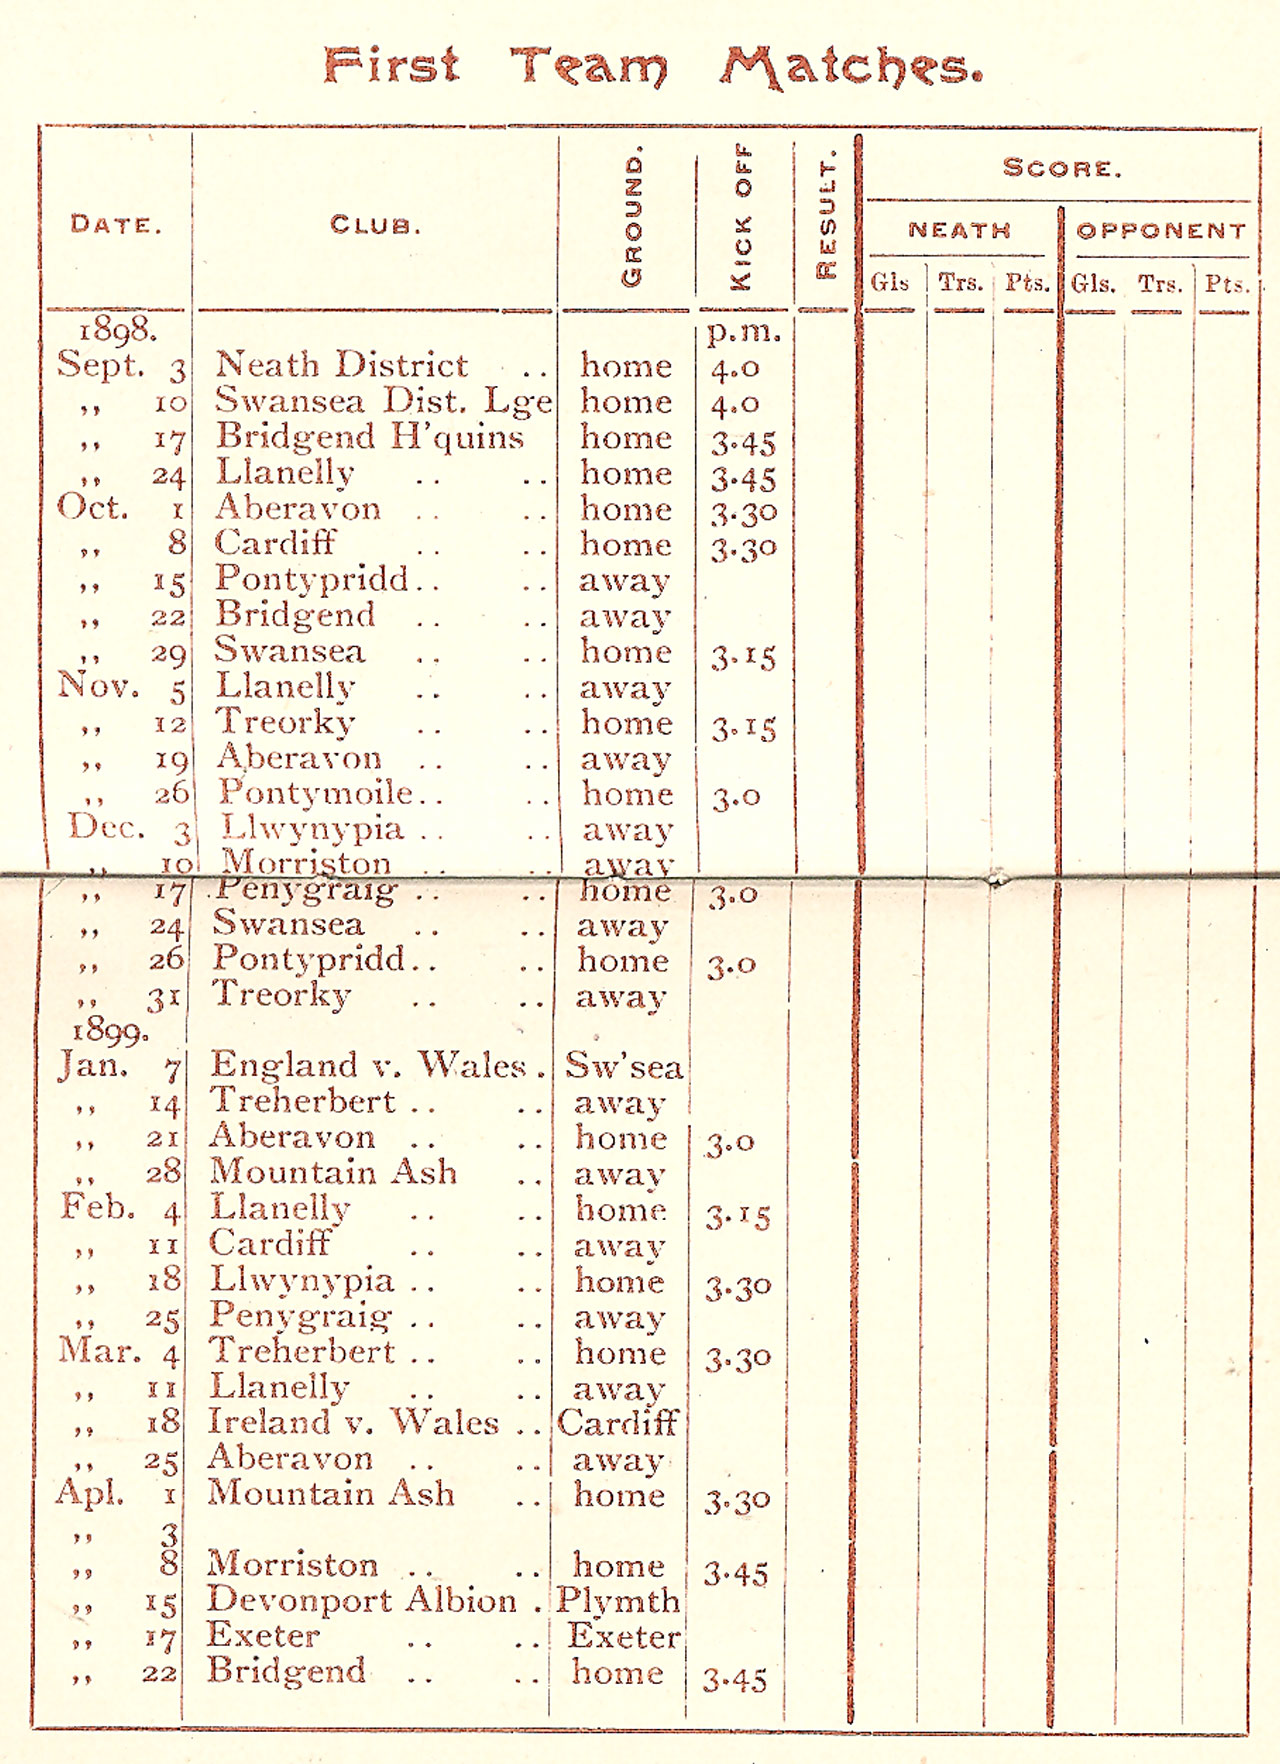 First Team Matches.
DATE. CLUB. GROUND. KICK OFF RESULT. SCORE.
NEATH OPPONENT
Gls Trs. Pts. Gls. Trs. Pts.
1898. p.m.
Sept. 3 Neath District .. home 4.0
,, 10 Swansea Dist. Lge home 4.0
,, 17 Bridgend H'quins home 3.45
,, 24 Llanelly .. .. home 3.45
Oct. 1 Aberavon .. .. home 3.30
,, 8 Cardiff .. .. home 3.30
,, 15 Pontypridd.. .. away
,, 22 Bridgend .. .. away
,, 29 Swansea .. .. home 3.15
Nov. 5 Llanelly .. .. away
,, 12 Treorky .. .. home 3.15
,, 19 Aberavon .. .. away
,, 26 Pontymoile.. .. home 3.0
Dec. 3 Llwynypia .. .. away
,, 10 Morriston .. .. away
,, 17 Penygraig .. .. home 3.0
,, 24 Swansea .. .. away
,, 26 Pontypridd.. .. home 3.0
,, 31 Treorky .. .. away
1899.
Jan. 7 England v. Wales . Sw'sea
,, 14 Treherbert .. .. away
,, 21 Aberavon .. .. home 3.0
,, 28 Mountain Ash .. away
Feb. 4 Llanelly .. .. home 3.15
,, 11 Cardiff .. .. away
,, 18 Llwynypia .. .. home 3.30
,, 25 Penygraig .. .. away
Mar. 4 Treherbert .. .. home 3.30
,, 11 Llanelly .. .. away
,, 18 Ireland v. Wales .. Cardiff
,, 25 Aberavon .. .. away
Apl. 1 Mountain Ash .. home 3.30
,, 3
,, 8 Morriston .. .. home 3.45
,, 15 Devonport Albion . Plymth
,, 17 Exeter .. .. Exeter
,, 22 Bridgend .. .. home 3.45